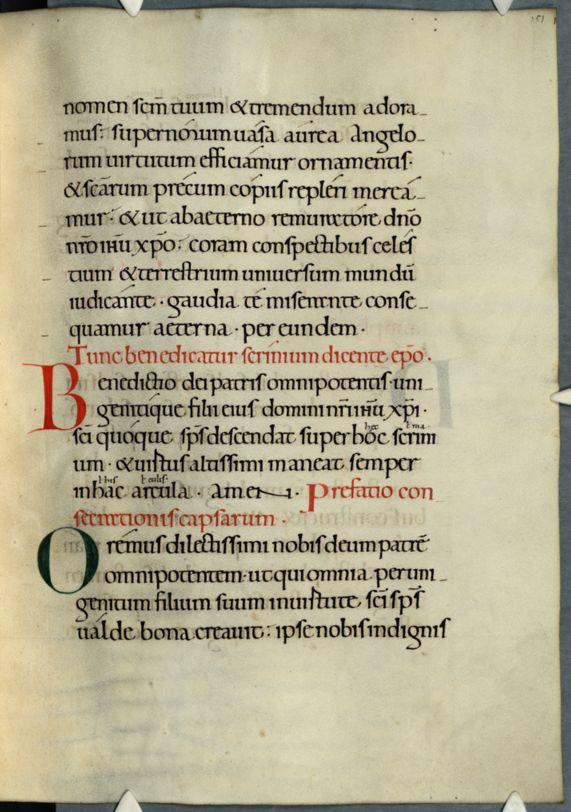 151
nomen scm̄ tuum & tremendum adora-
mus: supernorum uasa aurea Angelo-
rum uirtutum efficiamur ornamentis.
& scārum precum copiis repleri merea-
mur: & ut ab aeterno remuneratore dn̄o
nr̄o ihū xp̄o: coram conspectibus celes
tium & terrestrium uniuersum mundū
iudicante. gaudia te miserente conse-
quamur aeterna. per eundem.
Tunc benedicatur scrinium dicente ep̄o.
Benedictio dei patris omnipotentis. uni-
genitique filii eius domini nr̄i ihū xp̄i.
sc̄i quoque sp̄s descendat super hoc scrini
um. & uirtus altissimi maneat semper
in hac arcula. amen. Prefatio con
secrationis capsarum.
Oremus dilectissimi nobis deum patrē
omnipotentem. ut qui omnia per uni-
genitum filium suum in uirtute sc̄i sp̄s
ualde bona creauit: ipse nobis indignis